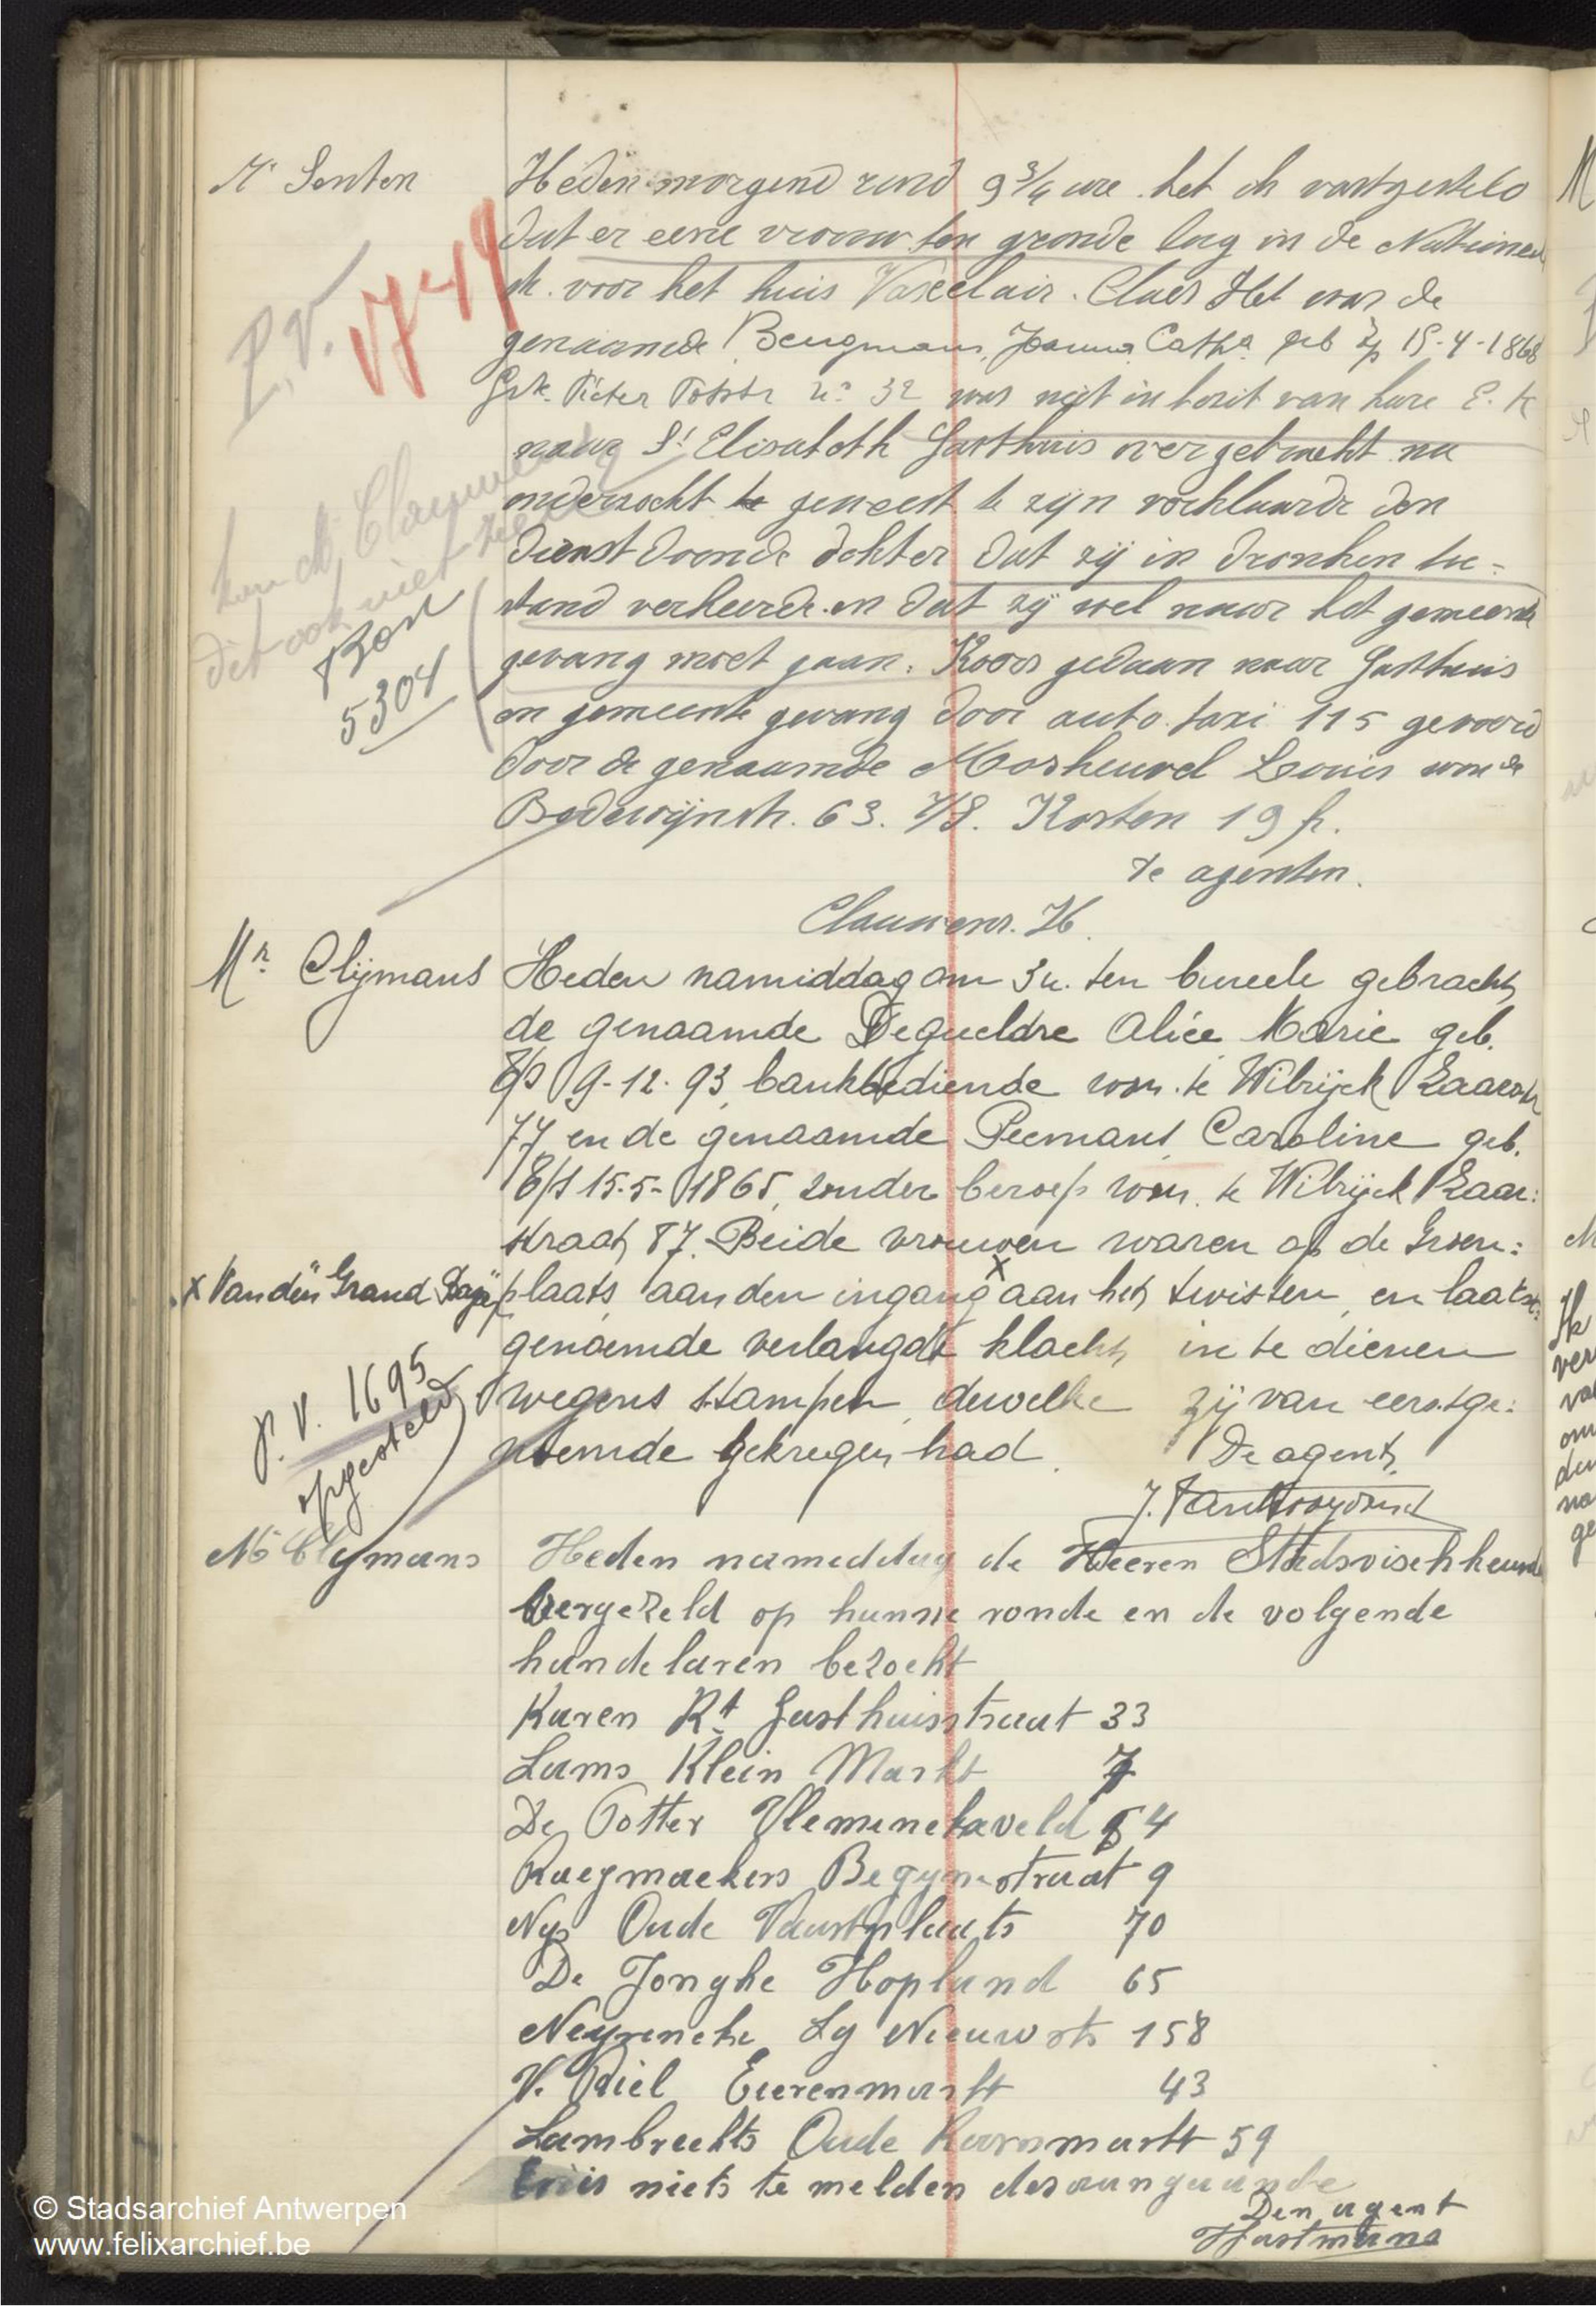 Mr Senten
Heden morgend rond 9 3/4 ure heb ik vastgesteld
dat er eene vrouw ten gronde lag in de Nationale
str. voor het huis Vaxelair. Claes Het was de
genaamde Bengmans, Joanna Catha geb 2/p 15-4-1868
Gsk. Pieter Potstr n° 32 was niet in bezit van hare E. K
naar St Elisabeth Gasthuis overgebracht na
onderzocht te geweest te zijn verklaarde den
dienstdoende dokter dat zij in dronken toe=
stand verkeerde en dat zij wel naar het gemeente
gevang moet gaan. Koors gedaan naar Gasthuis
en gemeente gevang door auto taxi 115 gevoerd
door de genaamde Mosheuvel Louis won de
Bodewijnstr. 63. 7/8. Kosten 19 fr.
De agenten.
Clauwers. H.
P.V.
1749
dit ook niet
Bon
5304
Mr. Clijmans
Heden namiddag om 3 u. ten bureele gebracht,
de genaamde Degueldre Alice Marie geb.
8/s 9-12-93, bankbediende won. te Wilrijck Laarstr
77 en de genaamde Peemans Caroline geb.
8/s 15-5-1865, zonder beroep won. te Wilrijck Laar:
straat, 87. Beide vrouwen waren op de Groen:
x Van den "Grand Bazar"
plaats aan den ingang x aan het twisten, en laatst:
genoemde verlangde klacht in te dienen
wegens stampen, dewelke zij van eerstge:
noemde gekregen had.
De agent,
P. V. 1695
opgesteld
Mr Clymans
Heden namiddag de Heeren Stadsvischkeurd
vergezeld op hunne ronde en de volgende
handelaren bezocht
Karen Rt Gasthuisstraat 33
Lams Klein Markt 7
De Potter Vleminckxveld 54
Raeymaekers Begynestraat 9
Nys Oude Vaartplaats 70
De Jonghe Hopland 65
Neyrencke Lg Nieuwstr 158
V. Riel Eierenmarkt 43
Lambrechts Oude Koornmarkt 59
Er is niets te melden desaangaande
Den agent
Hastmans
© Stadsarchief Antwerpen
www.felixarchief.be